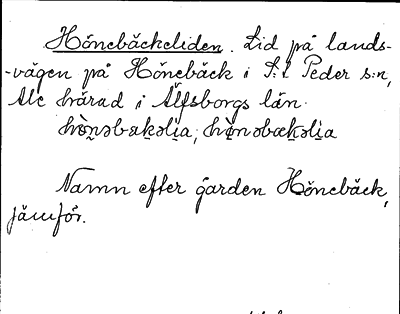 Hönebäckeliden. Lid på lands-
-vägen på Hönebäck i S:t Peder s:n,
Ale härad i Älfsborgs län.
Namn efter gården Hönebäck,
jämför.